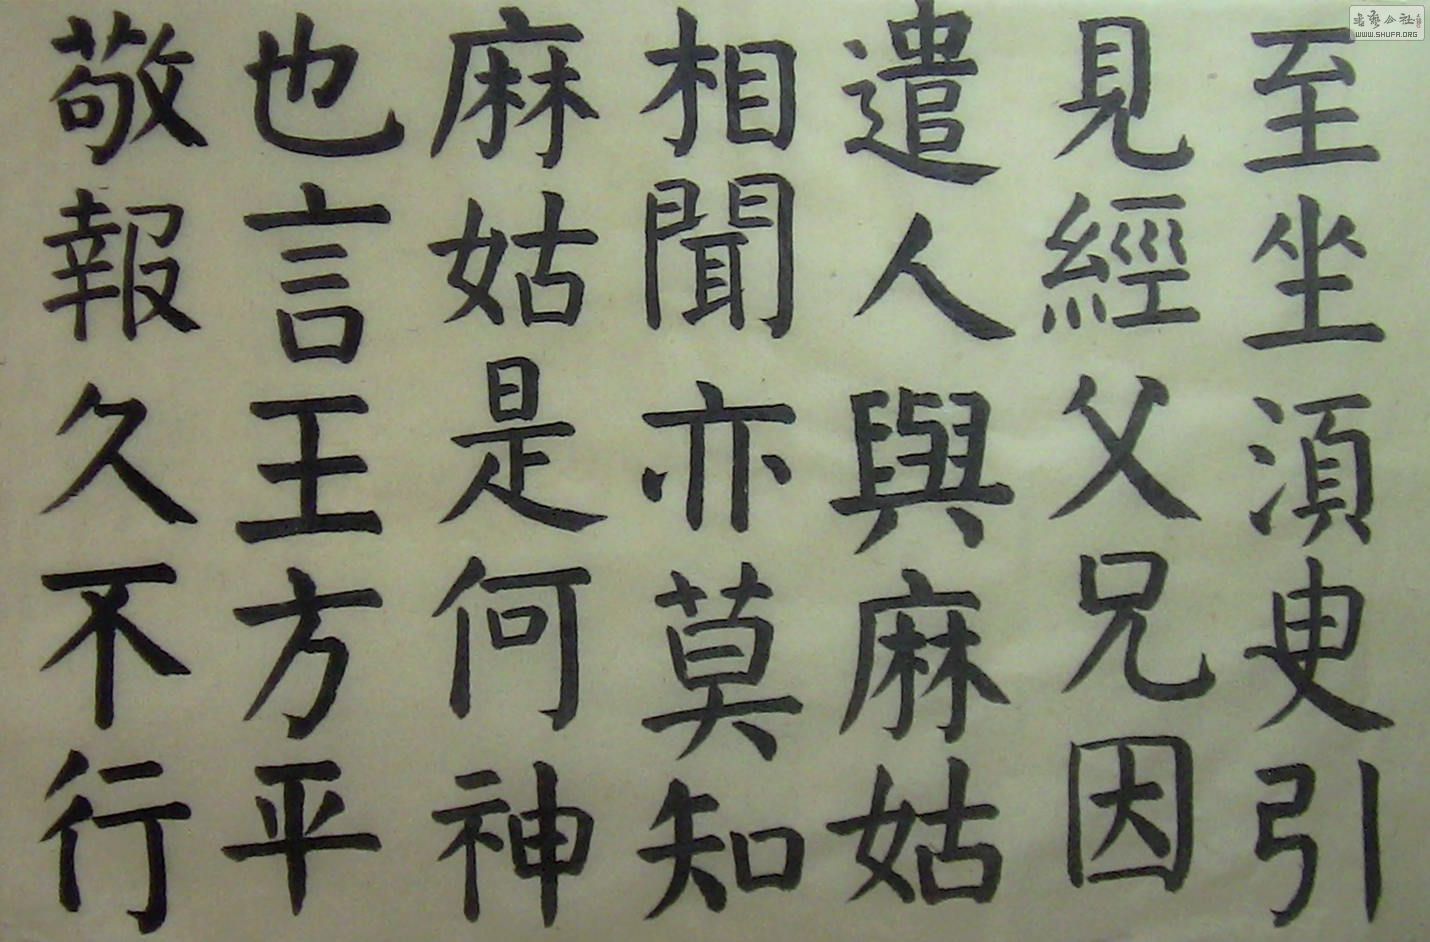 至坐須臾引
見經父兄因
遣人與麻姑
相聞亦莫知
麻姑是何神
也言王方平
敬報久不行
書藝公社
WWW.SHUFA.ORG